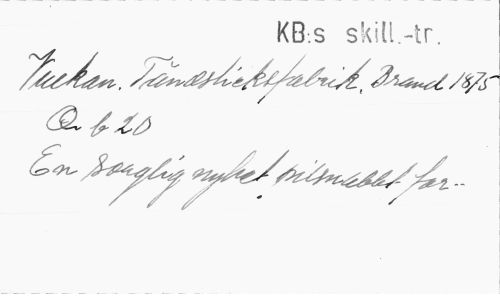 KB:s skill.-tr.
Vulkan. Tändsticksfabrik. Brand 1875
Qu b 20
En sorglig nyhet pilsnabbt far--